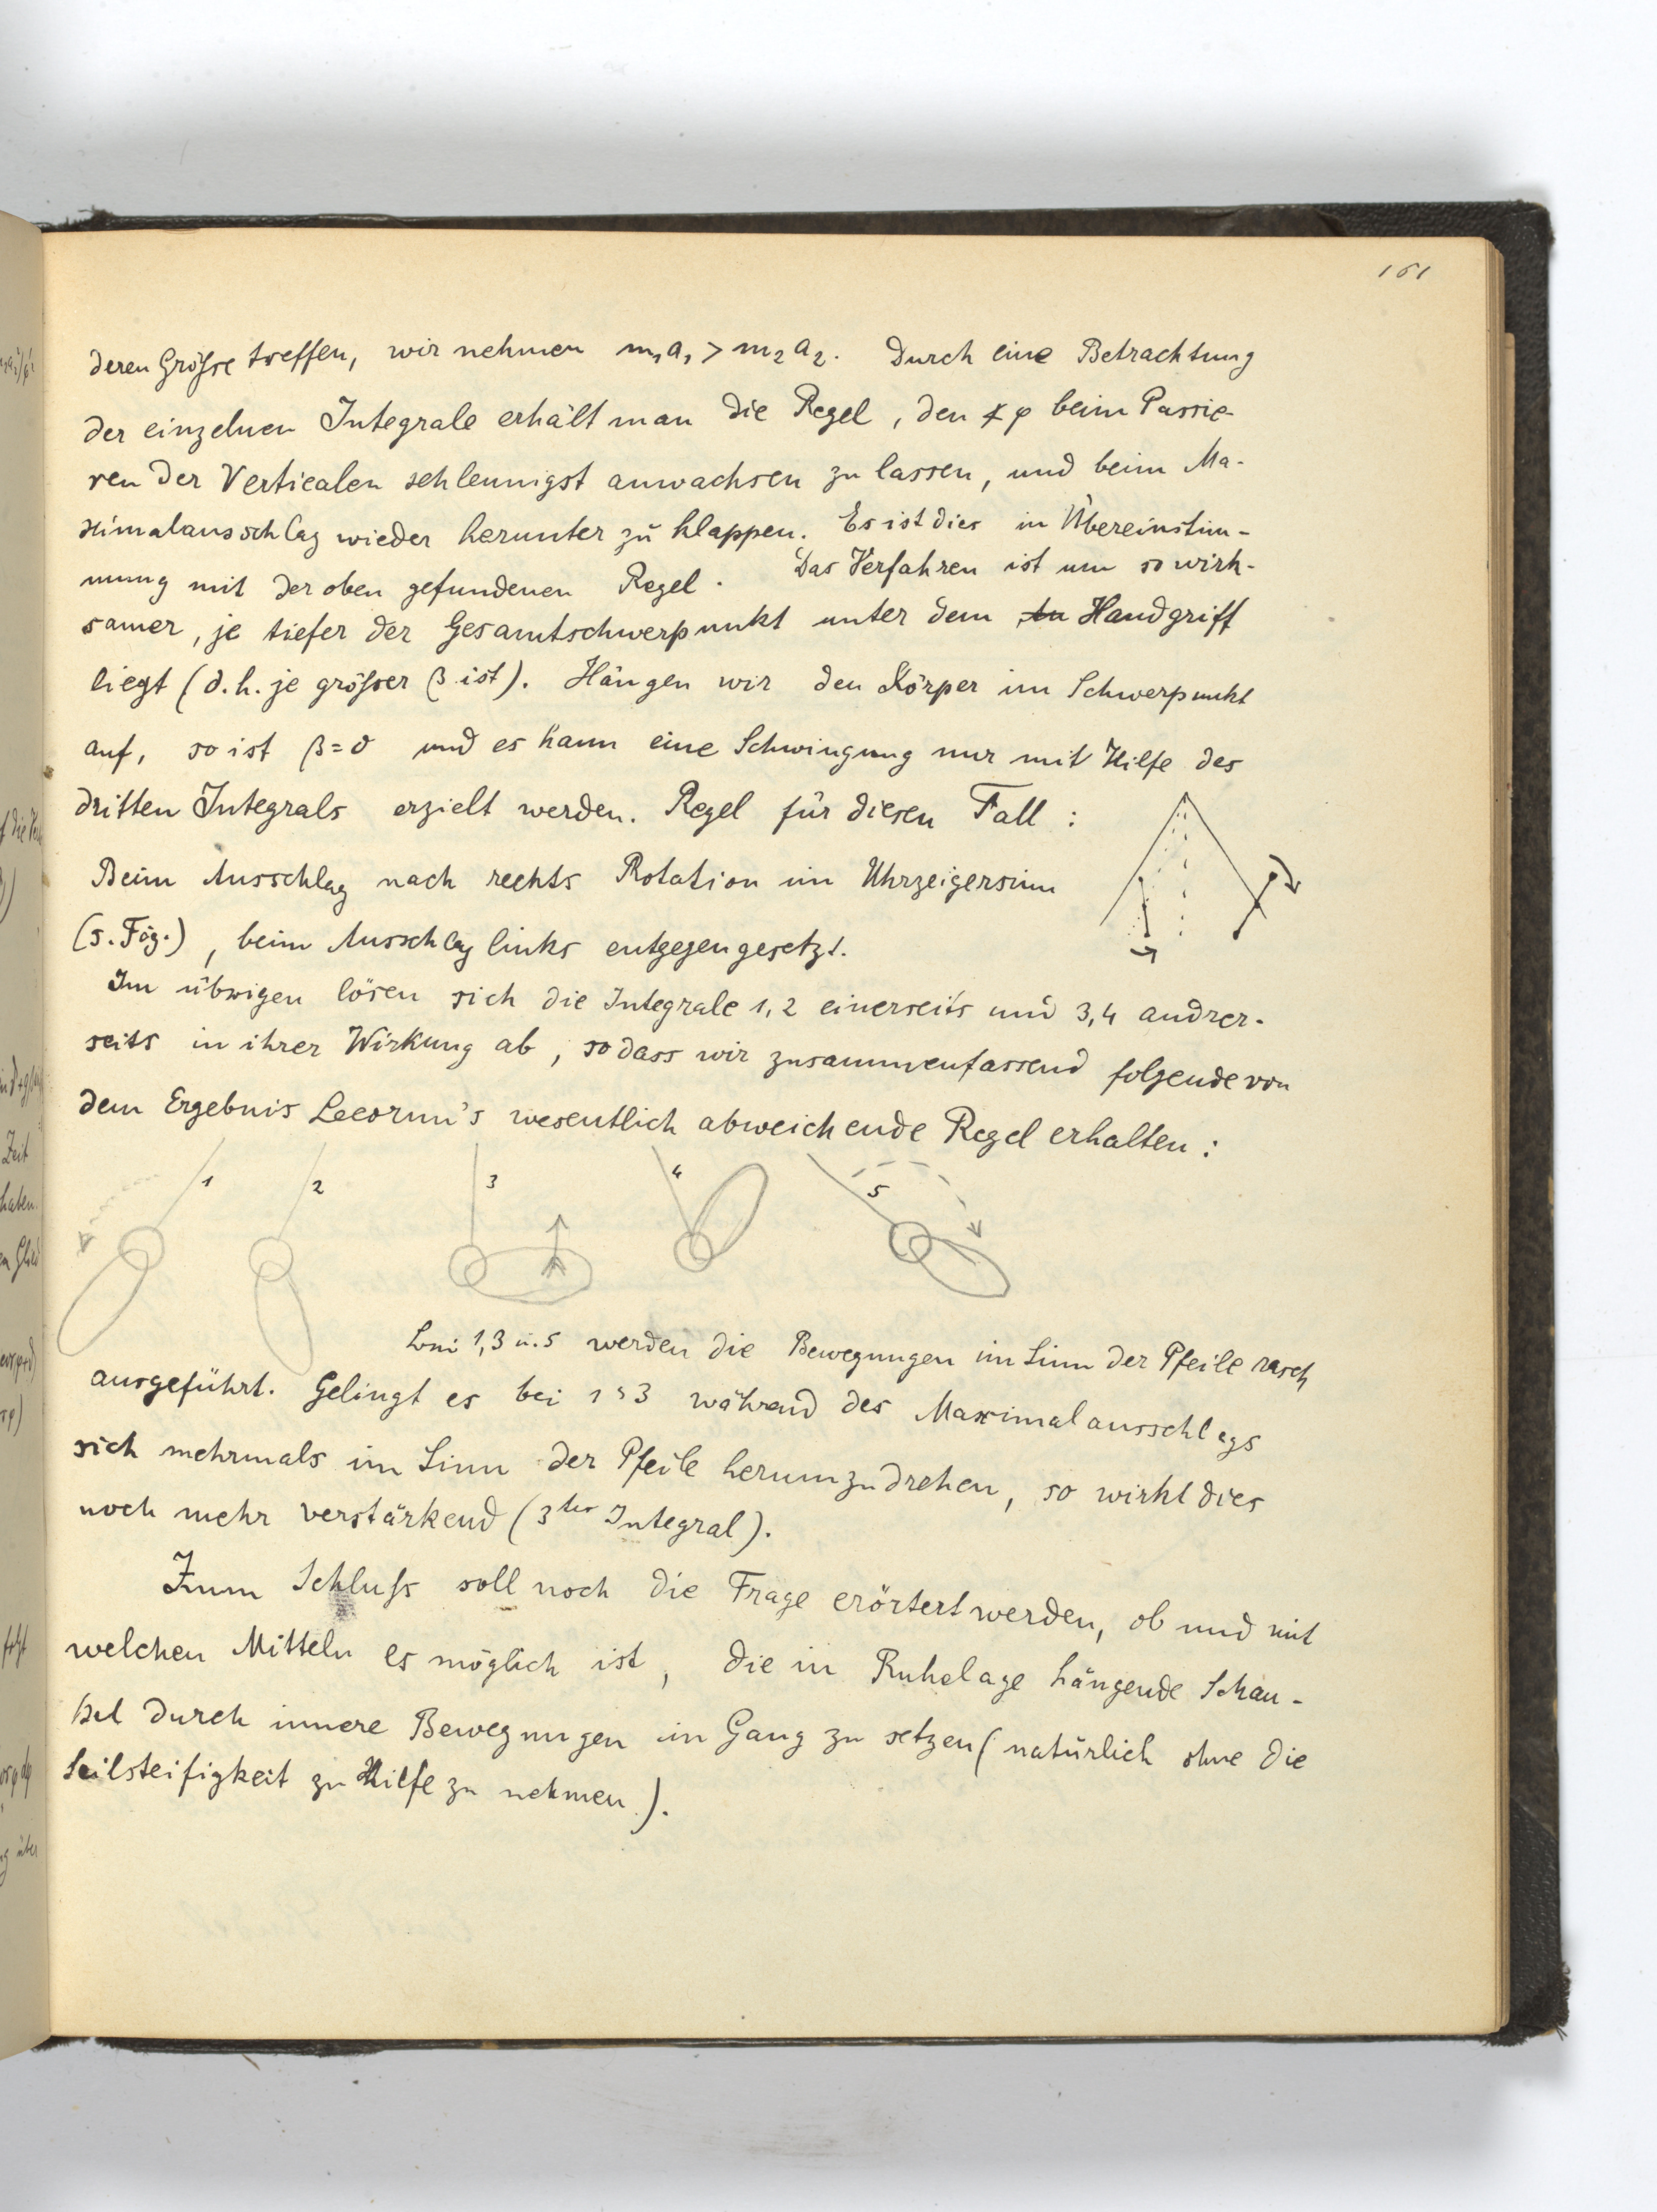 161
deren Größe treffen, wir nehmen m₁a₁ > m₂a₂. Durch eine Betrachtung
der einzelnen Integrale erhält man die Regel, den ∢ φ beim Passie-
ren der Verticalen schleunigst anwachsen zu lassen, und beim Ma-
ximalausschlag wieder herunter zu klappen. Es ist dies in Übereinstim-
mung mit der oben gefundenen Regel. Das Verfahren ist um so wirk-
samer, je tiefer der Gesamtschwerpunkt unter dem Handgriff
liegt (d.h. je größer β ist). Hängen wir den Körper im Schwerpunkt
auf, so ist β=0 und es kann eine Schwingung nur mit Hilfe des
dritten Integrals erzielt werden. Regel für diesen Fall:
Beim Ausschlag nach rechts Rotation im Uhrzeigersinn
(s. Fig.), beim Ausschlag links entgegengesetzt.
Im übrigen lösen sich die Integrale 1,2 einerseits und 3,4 andrer-
seits in ihrer Wirkung ab, so dass wir zusammenfassend folgende von
dem Ergebnis Lecornu's wesentlich abweichende Regel erhalten:
1 2 3 4 5
1,3 u. 5 werden die Bewegungen im Sinn der Pfeile rasch
ausgeführt. Gelingt es bei 1 3 während des Maximalausschlags
sich mehrmals im Sinn der Pfeile herumzudrehen, so wirkt dies
noch mehr verstärkend (3tes Integral).
Zum Schluß soll noch die Frage erörtert werden, ob und mit
welchen Mitteln es möglich ist, die in Ruhelage hängende Schau-
kel durch innere Bewegungen in Gang zu setzen (natürlich ohne die
Seilsteifigkeit zu Hilfe zu nehmen).